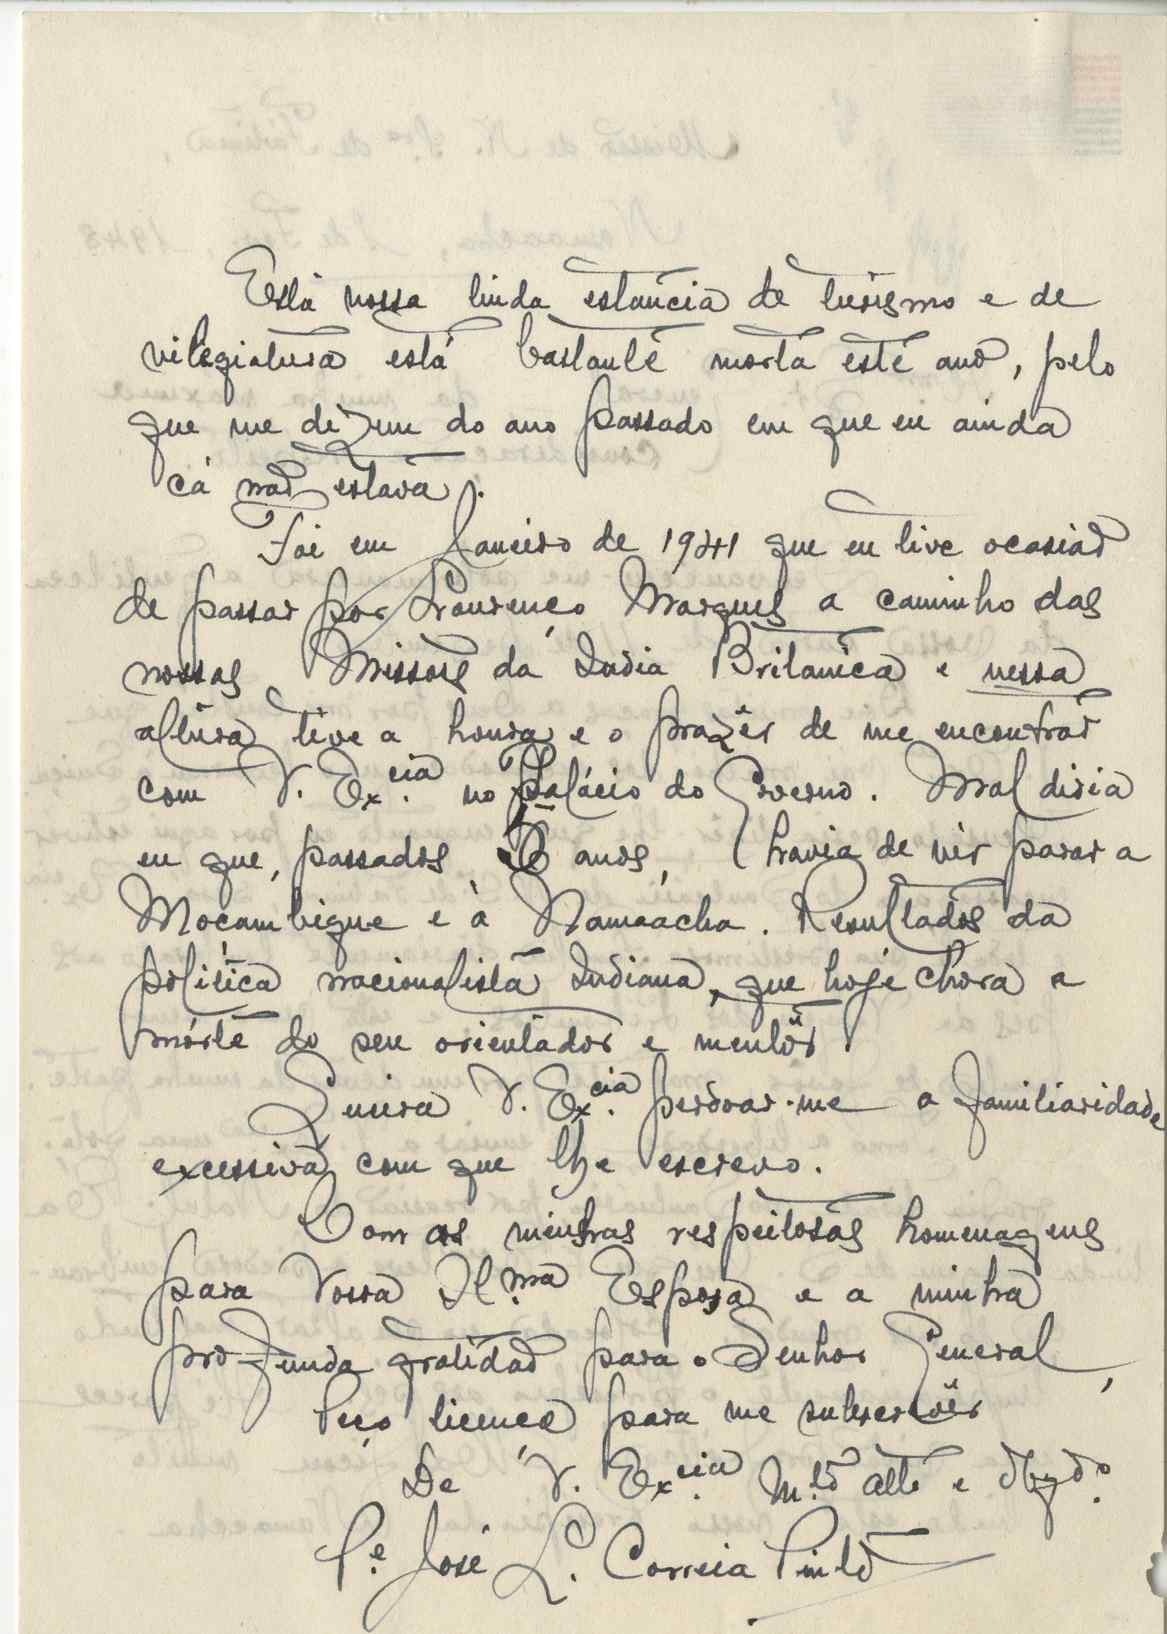 Esta nossa linda estancia de turismo e de
vilegiatura está bastante morta este ano, pelo
que me dizem do ano passado em que eu ainda
cá não estava.
Foi em Janeiro de 1941 que eu tive ocasião
de passar por Lourenço Marques a caminho das
nossas Missões da India Britanica e nessa
altura tive a honra e o prazêr de me encontrar
com V. Ex.cia no Palácio do Governo. Mal diria
eu que, passados anos, havia de vir parar a
Moçambique e à Namaacha. Resultados da
politica nacionalista Indiana, que hoje chora a
morte do seu orientador e mentôr.
Queira V. Ex.cia perdoar-me a familiaridade
excessiva com que lhe escrevo.
Com as minhas respeitosas homenagens
para Vossa Il.ma Esposa e a minha
profunda gratidão para o Senhor General,
Peço licença para me subscrevêr
De V. Ex.cia M.to Atto e Obgdo.
P.e José L. Correia Pinto